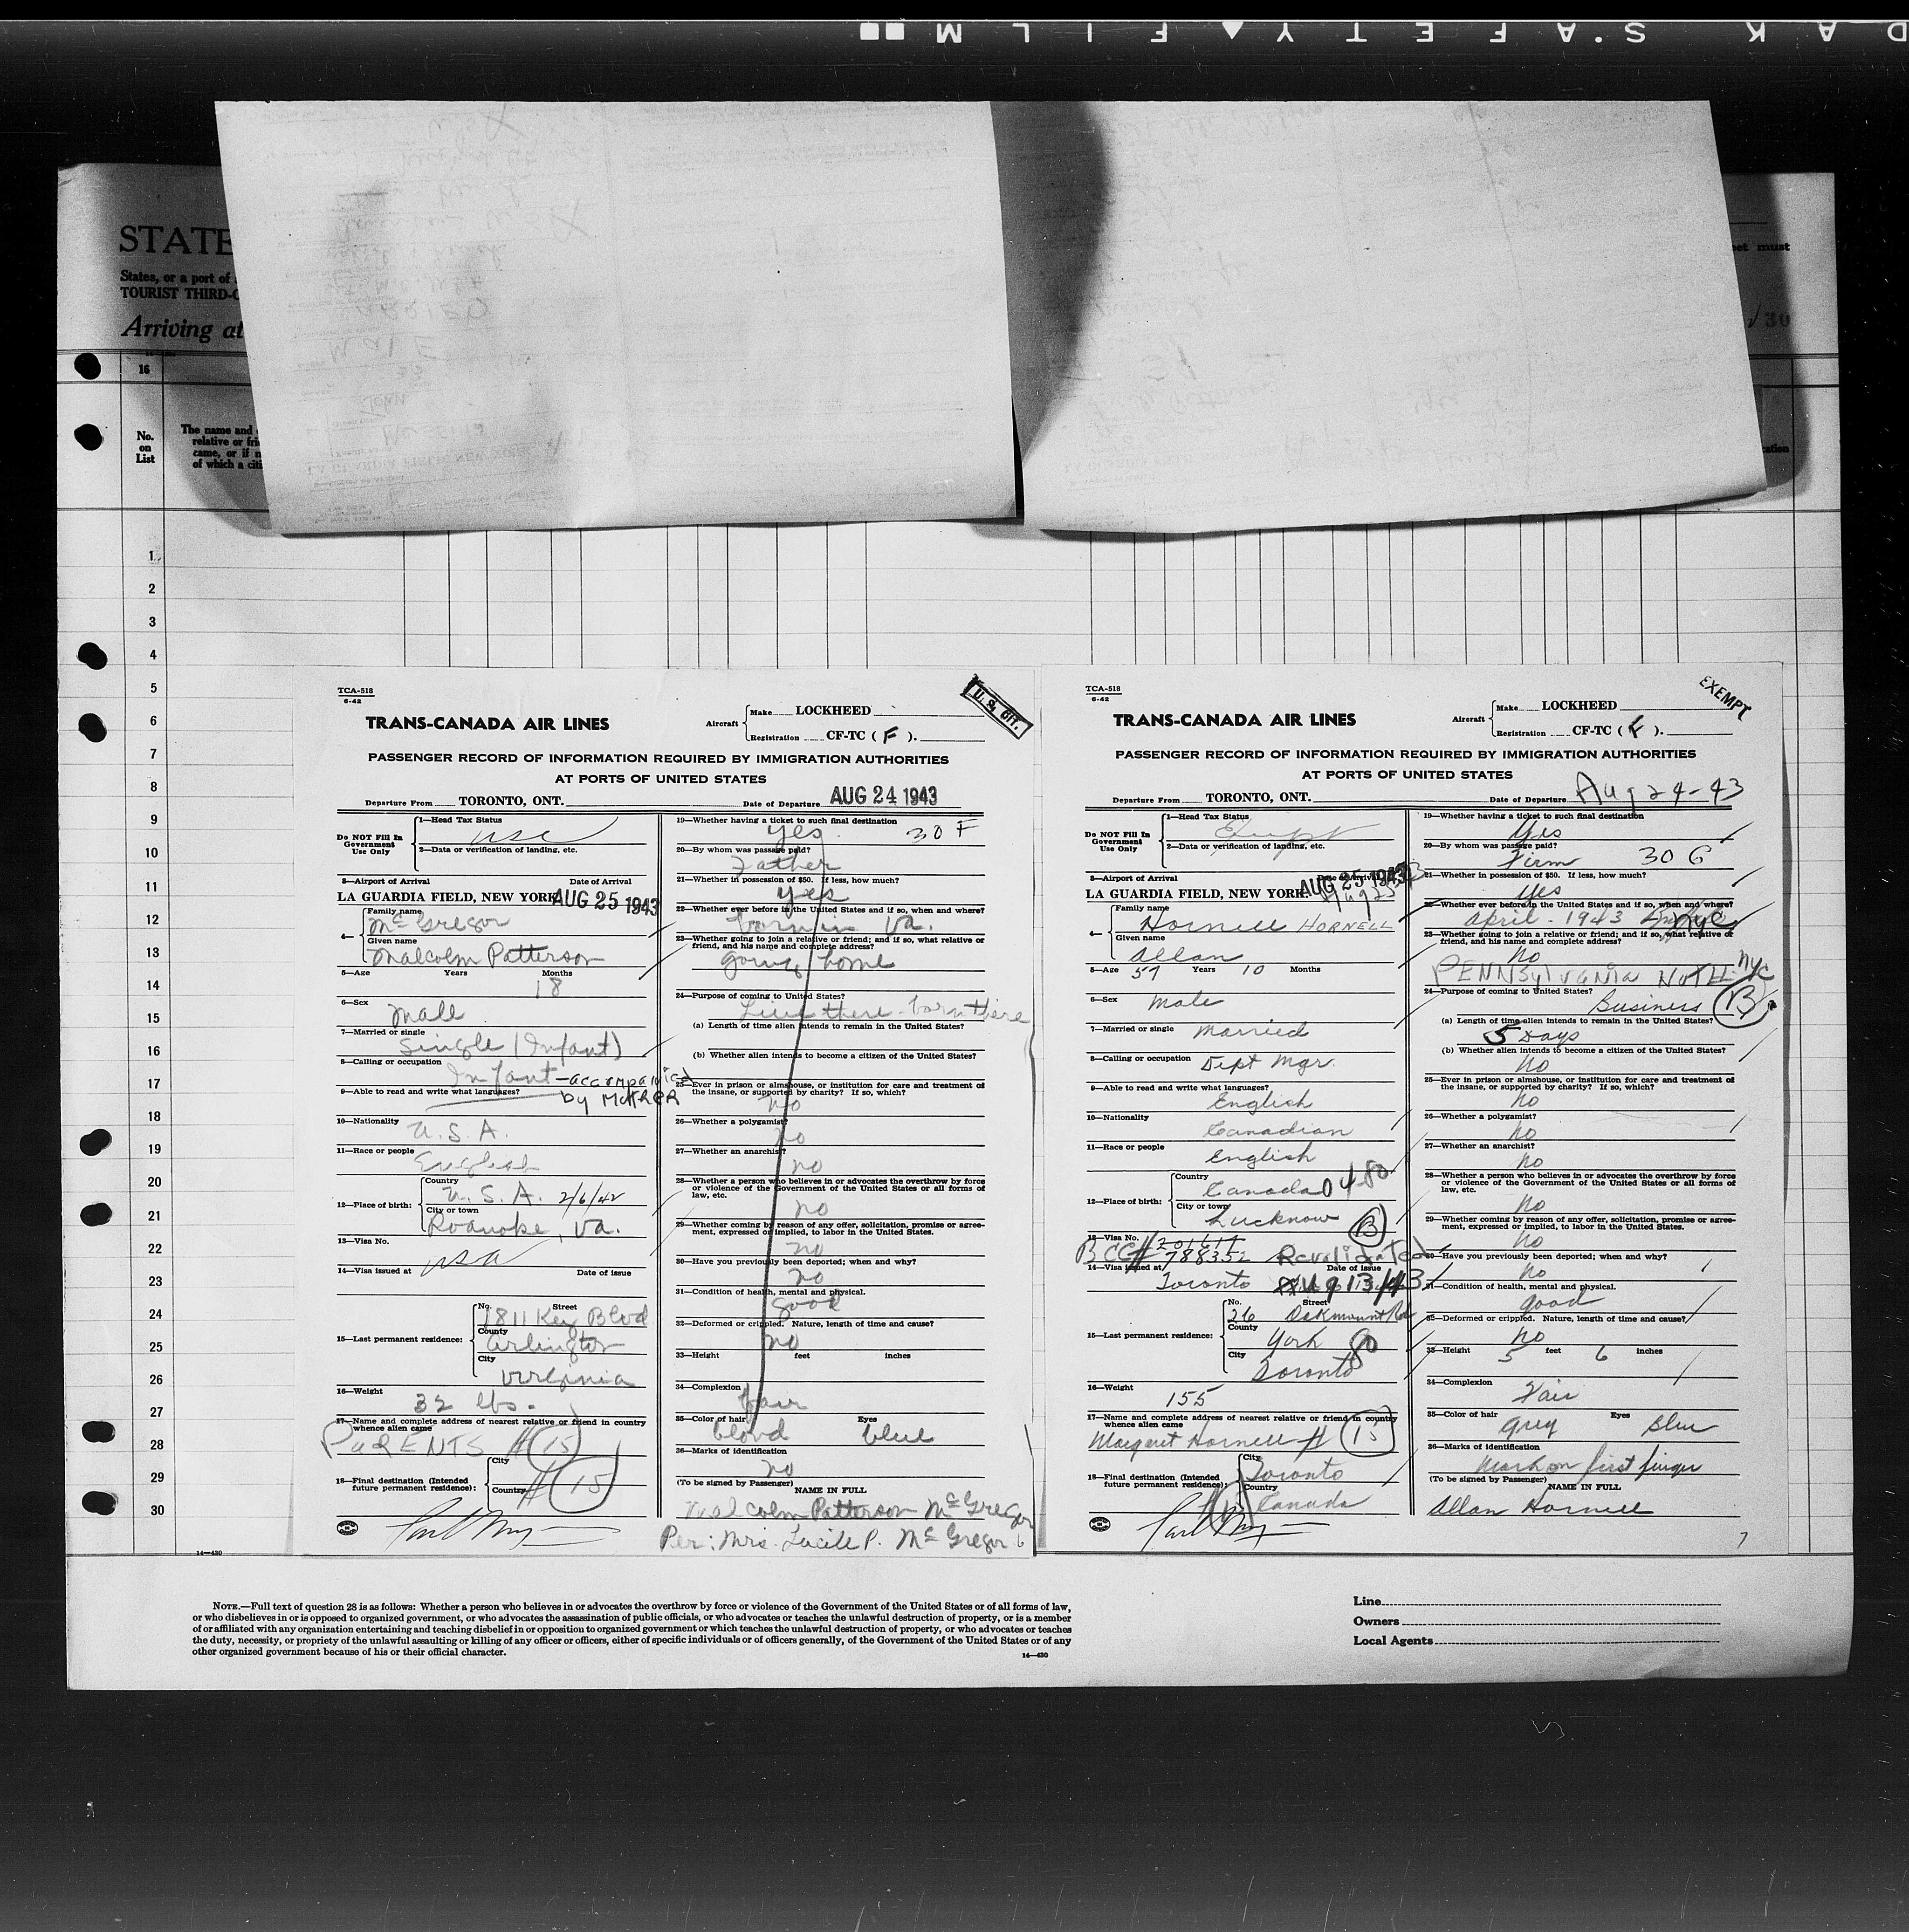 DAK SAFETY FILM
STATE
States, or a port of
TOURIST THIRD-C
Arriving at
eet must
30
16
No.
on
List
The name and
relative or fri
came, or if n
of which a citi
cation
1
2
3
4
5
6
7
8
9
10
11
12
13
14
15
16
17
18
19
20
21
22
23
24
25
26
27
28
29
30
TCA-518
6-42
U. S. CIT.
TRANS-CANADA AIR LINES
Aircraft
Make LOCKHEED
Registration CF-TC ( F ).
PASSENGER RECORD OF INFORMATION REQUIRED BY IMMIGRATION AUTHORITIES
AT PORTS OF UNITED STATES
Departure From TORONTO, ONT. Date of Departure AUG 24 1943
Do NOT Fill In
Government
Use Only
1—Head Tax Status
usc
2—Data or verification of landing, etc.
3—Airport of Arrival Date of Arrival
LA GUARDIA FIELD, NEW YORK AUG 25 1943
4—
Family name
McGregor
Given name
Malcolm Patterson
5—Age Years Months
18
6—Sex
Male
7—Married or single
Single (Infant)
8—Calling or occupation
Infant - accompanied
9—Able to read and write what languages?
by MotHER
10—Nationality
U.S.A.
11—Race or people
English
12—Place of birth:
Country
U.S.A. 2/6/42
City or town
Roanoke, Va.
13—Visa No.
14—Visa issued at Date of issue
15—Last permanent residence:
No. Street
1811 Key Blvd
County
Arlington
City
Virginia
16—Weight
32 lbs.
17—Name and complete address of nearest relative or friend in country
whence alien came
PARENTS # 15
18—Final destination (Intended
future permanent residence):
City
Country
# 15
14—430
19—Whether having a ticket to such final destination
Yes 30 F
20—By whom was passage paid?
Father
21—Whether in possession of $50. If less, how much?
yes
22—Whether ever before in the United States and if so, when and where?
born in Va.
23—Whether going to join a relative or friend; and if so, what relative or
friend, and his name and complete address?
going home
24—Purpose of coming to United States?
Live there - born there
(a) Length of time alien intends to remain in the United States?
(b) Whether alien intends to become a citizen of the United States?
25—Ever in prison or almshouse, or institution for care and treatment of
the insane, or supported by charity? If so, which?
no
26—Whether a polygamist?
no
27—Whether an anarchist?
no
28—Whether a person who believes in or advocates the overthrow by force
or violence of the Government of the United States or all forms of
law, etc.
no
29—Whether coming by reason of any offer, solicitation, promise or agree-
ment, expressed or implied, to labor in the United States.
no
30—Have you previously been deported; when and why?
no
31—Condition of health, mental and physical.
good
32—Deformed or crippled. Nature, length of time and cause?
no
33—Height feet inches
34—Complexion
fair
35—Color of hair Eyes
blond blue
36—Marks of identification
no
(To be signed by Passenger)
NAME IN FULL
Malcolm Patterson McGregor
Per: Mrs. Lucille P. McGregor 6
TCA-518
6-42
EXEMPT
TRANS-CANADA AIR LINES
Aircraft
Make LOCKHEED
Registration CF-TC ( F ).
PASSENGER RECORD OF INFORMATION REQUIRED BY IMMIGRATION AUTHORITIES
AT PORTS OF UNITED STATES
Departure From TORONTO, ONT. Date of Departure Aug 24-43
Do NOT Fill In
Government
Use Only
1—Head Tax Status
Exempt
2—Data or verification of landing, etc.
3—Airport of Arrival Date of Arrival
LA GUARDIA FIELD, NEW YORK. AUG 25 1943
4—
Family name
Hornell HORNELL
Given name
Allan
5—Age 57 Years 10 Months
6—Sex
Male
7—Married or single
Married
8—Calling or occupation
Dept Mgr.
9—Able to read and write what languages?
English
10—Nationality
Canadian
11—Race or people
English
12—Place of birth:
Country
Canada 04 80
City or town
Lucknow B
13—Visa No.
BCC# 788352 Revalidated
14—Visa issued at Date of issue
Toronto Aug 13/43
15—Last permanent residence:
No. Street
36 Oakmount Rd
County
York 80
City
Toronto
16—Weight
155
17—Name and complete address of nearest relative or friend in country
whence alien came
Margaret Hornell # 15
18—Final destination (Intended
future permanent residence):
City
Toronto
Country
Canada
19—Whether having a ticket to such final destination
Yes
20—By whom was passage paid?
Firm 30 G
21—Whether in possession of $50. If less, how much?
Yes
22—Whether ever before in the United States and if so, when and where?
April - 1943 NYC
23—Whether going to join a relative or friend; and if so, what relative or
friend, and his name and complete address?
No
PENNSylvania HoTEL NYC
24—Purpose of coming to United States?
Business B
(a) Length of time alien intends to remain in the United States?
5 Days
(b) Whether alien intends to become a citizen of the United States?
No
25—Ever in prison or almshouse, or institution for care and treatment of
the insane, or supported by charity? If so, which?
No
26—Whether a polygamist?
No
27—Whether an anarchist?
No
28—Whether a person who believes in or advocates the overthrow by force
or violence of the Government of the United States or all forms of
law, etc.
No
29—Whether coming by reason of any offer, solicitation, promise or agree-
ment, expressed or implied, to labor in the United States.
No
30—Have you previously been deported; when and why?
No
31—Condition of health, mental and physical.
good
32—Deformed or crippled. Nature, length of time and cause?
No
33—Height 5 feet 6 inches
34—Complexion
Fair
35—Color of hair Eyes
Grey Blue
36—Marks of identification
Mark on first finger
(To be signed by Passenger)
NAME IN FULL
Allan Hornell
7
NOTE.—Full text of question 28 is as follows: Whether a person who believes in or advocates the overthrow by force or violence of the Government of the United States or of all forms of law,
or who disbelieves in or is opposed to organized government, or who advocates the assassination of public officials, or who advocates or teaches the unlawful destruction of property, or is a member
of or affiliated with any organization entertaining and teaching disbelief in or opposition to organized government or which teaches the unlawful destruction of property, or who advocates or teaches
the duty, necessity, or propriety of the unlawful assaulting or killing of any officer or officers, either of specific individuals or of officers generally, of the Government of the United States or of any
other organized government because of his or their official character.
14—430
Line
Owners
Local Agents